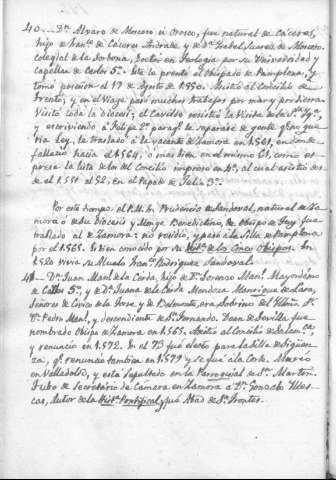 40... Dn. Alvaro de Moscoso ú Orosco, fue natural de Cáceres,
hijo de Franco. de Cáceres Andrade y de Da. Isabel Suarez de Moscoso.
Colegial de la Sorbona, Doctor en Teologia por su Universidad y
Capellan de Carlos 5o. Este le presentó el Obispado de Pamplona, y
tomó posesion el 17 de Agosto de 1550. Asistió al Concilio de
Trento, y en el viaje pasó muchos trabajos por mar y por tierra
Visitó toda la diocesis; el Cavildo resistió la Visita de la
y escriviendo á Felipe 2o. para qe. le separase de gente qe. no que
ria Ley, le trasladó á la vacante de Zamora en 1561, en donde
falleció hacia el 1564, ó mas bien en el mismo 61, como es
presa la lista de los del Concilio impreso en 4o, al cual asistió des
de el 1551 al 52, en el Papado de Julio 3o.
Por este tiempo el P. M. Fr. Prudencio de Sandoval, natural de Za
mora ó de su Diocesis y Monge Benedictino, de Obispo de Tuy fue
trasladado al de Zamora: no residió, y pasó á la Silla de Pamplona
por el 1565. Es bien conocido por su Hista. de los Cinco Obispos. En
1520 vivia su Abuelo Franco. Rodriguez Sandoval.
41- Dn. Juan Manl. de la Cerda, hijo de Dn. Lorenzo Manl. Mayordomo
de Carlos 5o., y de Da. Juana de la Cerda Mendoza Manrique de Lara,
Señores de Cevico de la Torre y de Belmonte, era Sobrino del Illmo. Sr.
Dn. Pedro Manl. y descendiente de Sn. Fernando. Dean de Sevilla fue
nombrado Obispo de Zamora en 1565. Asistió al Concilio de Salamca
y renunció en 1572. En el 73 fué electo para la Silla de Sigüen
za, qe. renunció tambien en 1579 y se fué á la Corte. Murió
en Valladolid, y está sepultado en la Parroquial de Sn. Martin.
Tubo de Secretario de Cámara en Zamora á Dn. Gonzalo Illes
cas, Autor de la Hista. Pontifical, y qué Abad de Sn. Frontes.